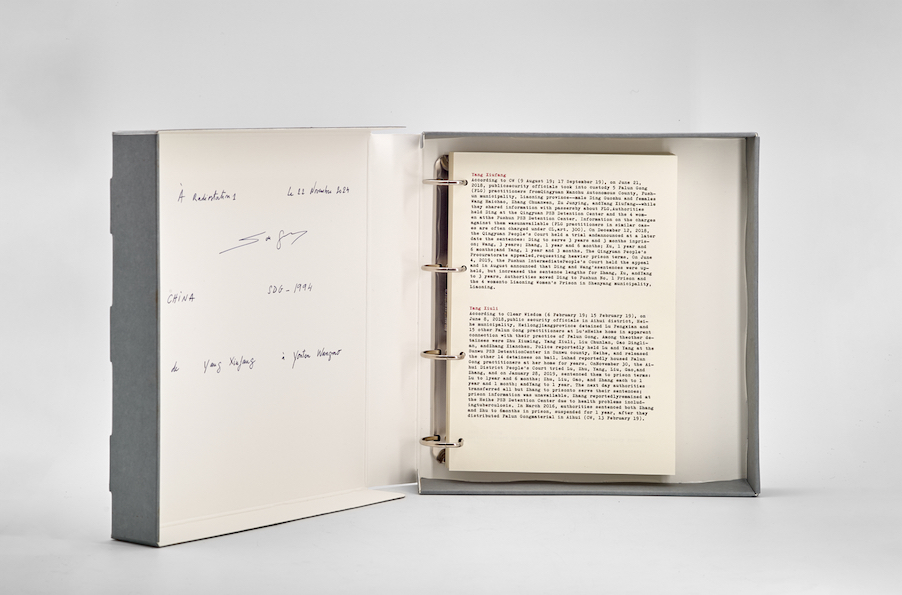 le 22 Novembre 2024
CHINA
SDG-1994
de Yang Xiufang à
Yang Xiufang
According to CW (9 August 19; 17 September 19), on June 21,
2018, publicsecurity officials took into custody 5 Falun Gong
(FLG) practitioners fromQingyuan Manchu Autonomous County, Fush-
un municipality, Lianning province—male Ding Guozhu and females
Wang Haichao, Zhang Chuanwen, Xu Junying, andYang Xiufang—while
they shared information with passersby about FLG.Authorities
held Ding at the Qingyuan PSB Detention Center and the 4 wom-
en atthe Fushun PSB Detention Center. Information on the charges
against them wasunavailable (FLG practitioners in similar cas-
es are often charged under CL,art. 300). On December 12, 2018,
the Qingyuan People's Court held a trial andannounced at a later
date the sentences: Ding to serve 3 years and 3 months inpris-
on; Wang, 3 years; Zhang, 1 year and 8 months; Xu, 1 year and
6 months;and Yang, 1 year and 3 months. The Qingyuan People's
Procuratorate appealed,requesting heavier prison terms. On June
4, 2019, the Fushun IntermediatePeople's Court held the appeal
and in August announced that Ding and Wang'ssentences were up-
held, but increased the sentence lengths for Zhang, Xu, andYang
to 3 years. Authorities moved Ding to Fushun No. 1 Prison and
the 4 womento Lianning Women's Prison in Shenyang municipality,
Lianning.
Yang Xiuli
According to Clear Wisdom (6 February 19; 15 February 19), on
June 8, 2018,public security officials in Aihui district, Hei-
he municipality, Heilongjiangprovince detained Lu Fengxian and
15 other Falun Gong practitioners at Lu'sHeihe home in apparent
connection with their practice of Falun Gong. Among theother de-
tainees were Zhu Xiuming, Yang Xiuli, Liu Chenlan, Gao Dingli-
an, andZhang Xianchen. Police reportedly held Lu and Yang at the
Sunwu PSB DetentionCenter in Sunwu county, Heihe, and released
the other 14 detainees on bail. Luhad reportedly housed Falun
Gong practitioners at her home for years. OnNovember 30, the Ai-
hui District People's Court tried Lu, Zhu, Yang, Liu, Gao,and
Zhang, and on January 28, 2019, sentenced them to prison terms:
Lu to 1year and 6 months; Zhu, Liu, Gao, and Zhang each to 1
year and 1 month; andYang to 1 year. The next day authorities
transferred all but Zhang to prisonto serve their sentences;
prison information was unavailable. Zhang reportedlyremained at
the Heihe PSB Detention Center due to health problems includ-
ingtuberculosis. In March 2016, authorities sentenced both Zhang
and Zhu to 6months in prison, suspended for 1 year, after they
distributed Falun Gongmaterial in Aihui (CW, 13 February 19).